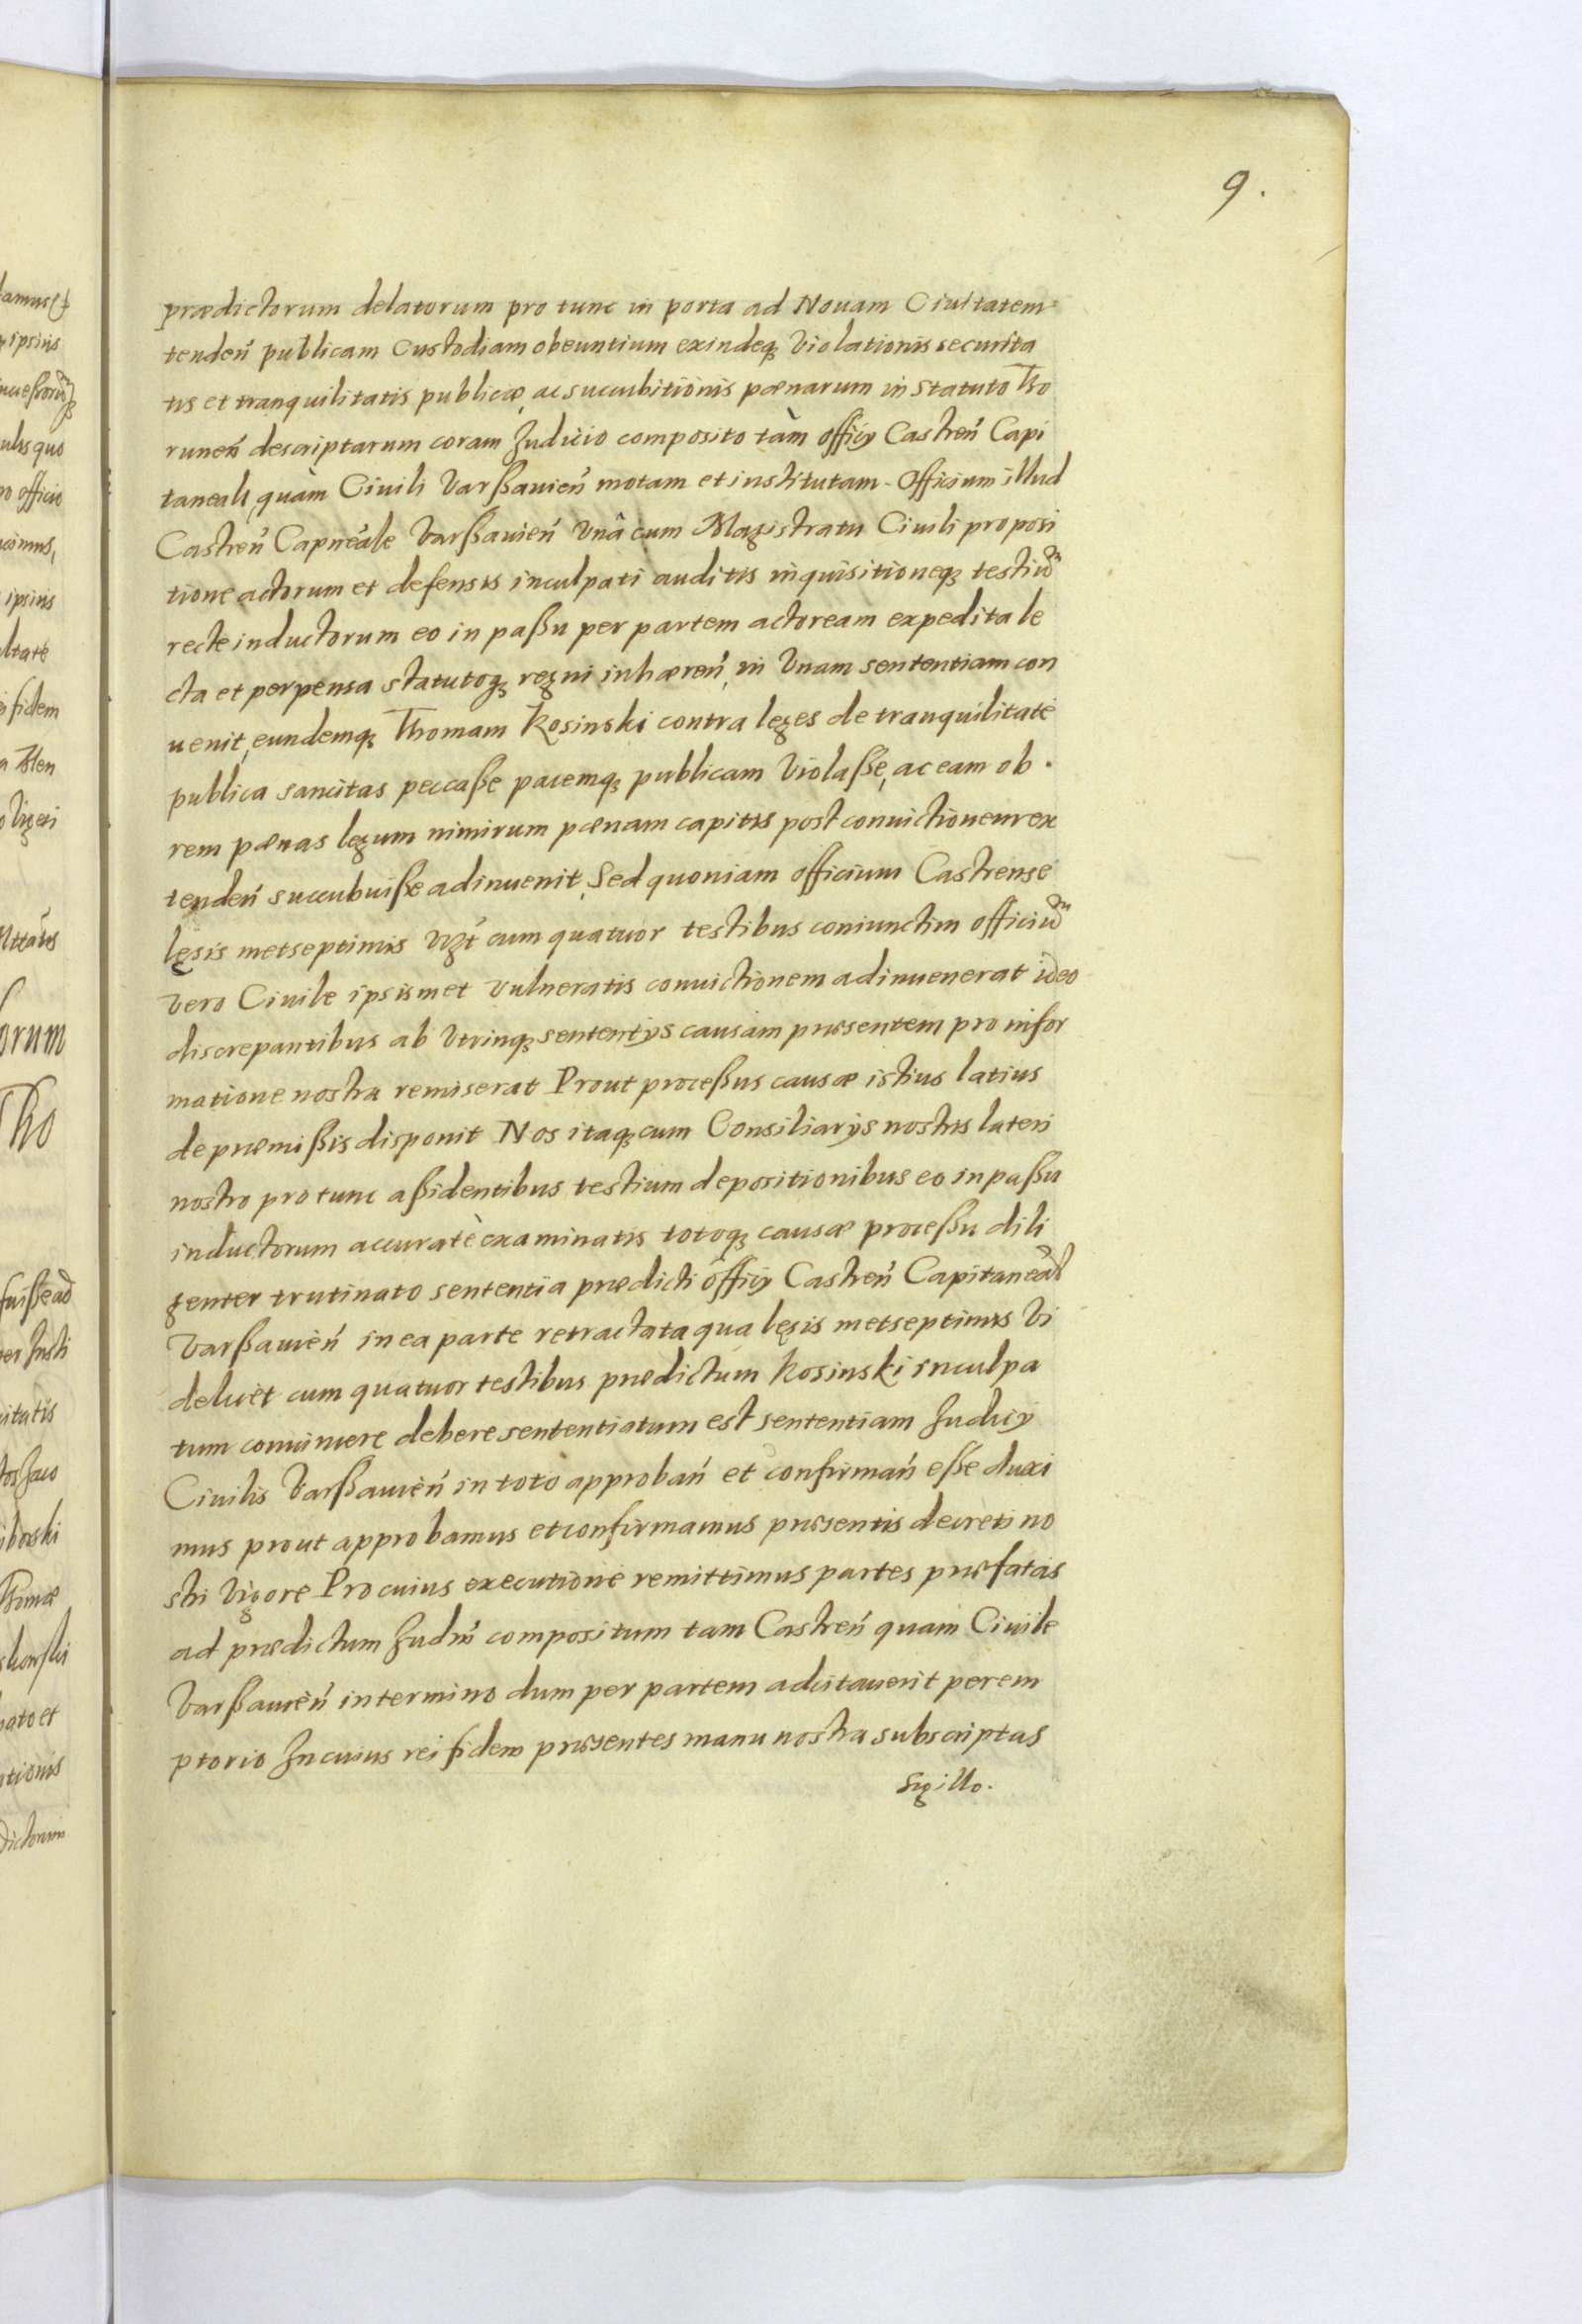 9.
prædictorum delatorum pro tunc in porta ad Nouam Ciuitatem
tendeń publicam custodiam obeuntium exindeq3 violationis securita
tis et tranquilitatis publicæ, ac succubitionis pœnarum in statuto Tho
runeń descriptarum coram Judicio composito tàm officÿ Castreń Capi
taneali, quàm Ciuili Varßauień motam et institutam. Officium illud
Castreń Capneale Varßauień Vnâ cum Magistratu Ciuili proposi
tione actorum et defensis inculpati auditis inquisitioneq3 testiu͂
recte inductorum eo in paßu per partem actoream expedita le
cta et perpensa statutoq3 regni inhæreń, in Vnam sententiam con
uenit, eundemq3 Thomam Kosinski contra leges de tranquilitate
publica sancitas peccaße pacemq3 publicam violaße, ac eam ob
rem pœnas legum nimirum pœnam capitis post conuictionem ex
tendeń succubuiße adinuenit, Sed quoniam officium Castrense
lęsis metseptimis Vzt cum quatuor testibus coniunctim officiu͂
vero Ciuile ipsismet vulneratis conuictionem adinuenerat ideo
discrepantibus ab Vtrinq3 sententÿs causam præsentem pro infor
matione nostra remiserat Prout proceßus causæ istius latius
de præmißis disponit Nos itaq3 cum Consiliarÿs nostris lateri
nostro pro tunc aßidentibus testium depositionibus eo in paßu
inductorum accuratè examinatis totoq3 causæ proceßu dili
genter trutinato sententia prædicti officÿ Castreń Capitaneał
Varßauień in ea parte retractata qua lęsis metseptimis Vi
delicet cum quatuor testibus prædictum Kosinski inculpa
tum conuincere debere sententiatum est sententiam Judicÿ
Ciuilis Varßauień in toto approbań et confirmań eße duxi
mus prout approbamus et confirmamus præsentis decreti no
stri vigore Pro cuius executione remittimus partes præfatas
ad prædictum Judm̃ compositum tam Castreń quam Ciuile
Varßauień in termino dum per partem adcitauerit perem
ptorio In cuius rei fidem præsentes manu nostra subscriptas
Sigillo.